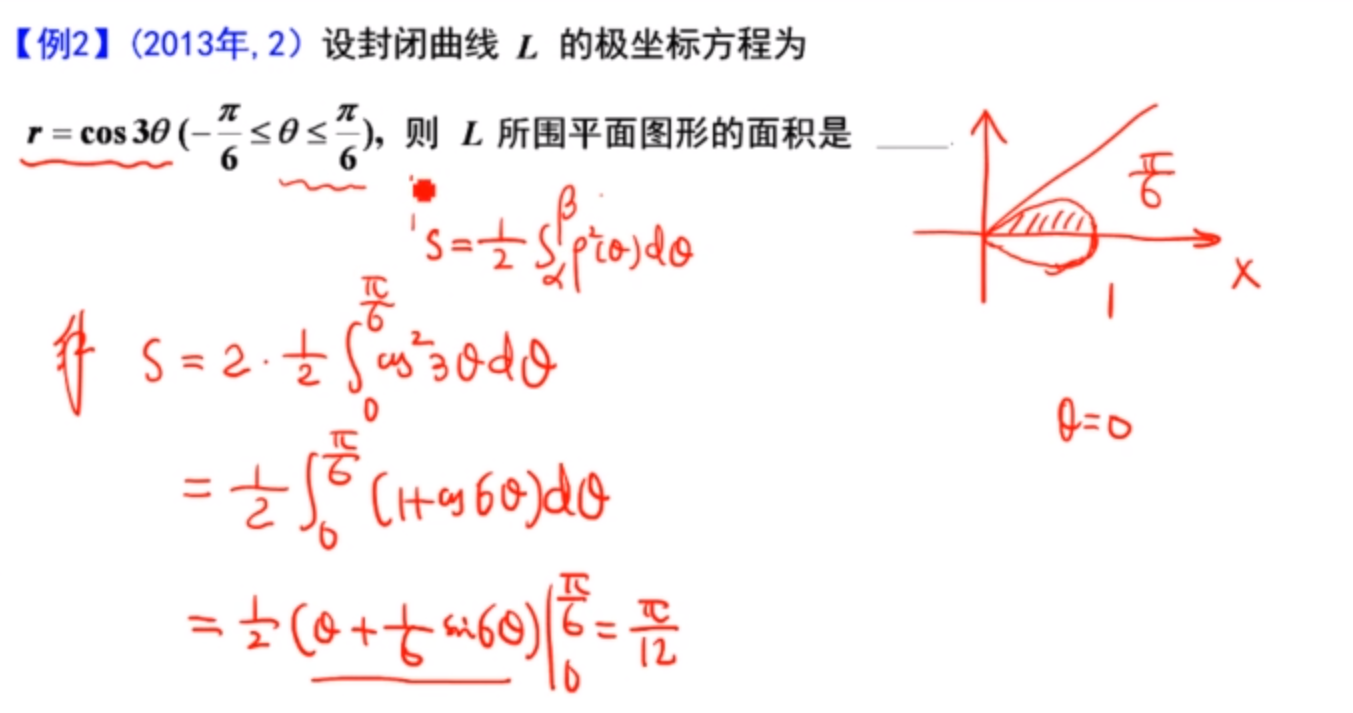 【例2】(2013年, 2) 设封闭曲线 L 的极坐标方程为
r = cos 3θ (-π/6 ≤ θ ≤ π/6), 则 L 所围平面图形的面积是 ____.
S = 1/2 ∫_α^β ρ²(θ)dθ
π/6
x
1
解 S = 2 · 1/2 ∫_0^{π/6} cos²3θdθ
θ=0
= 1/2 ∫_0^{π/6} (1+cos6θ)dθ
= 1/2 (θ + 1/6 sin6θ)|_0^{π/6} = π/12